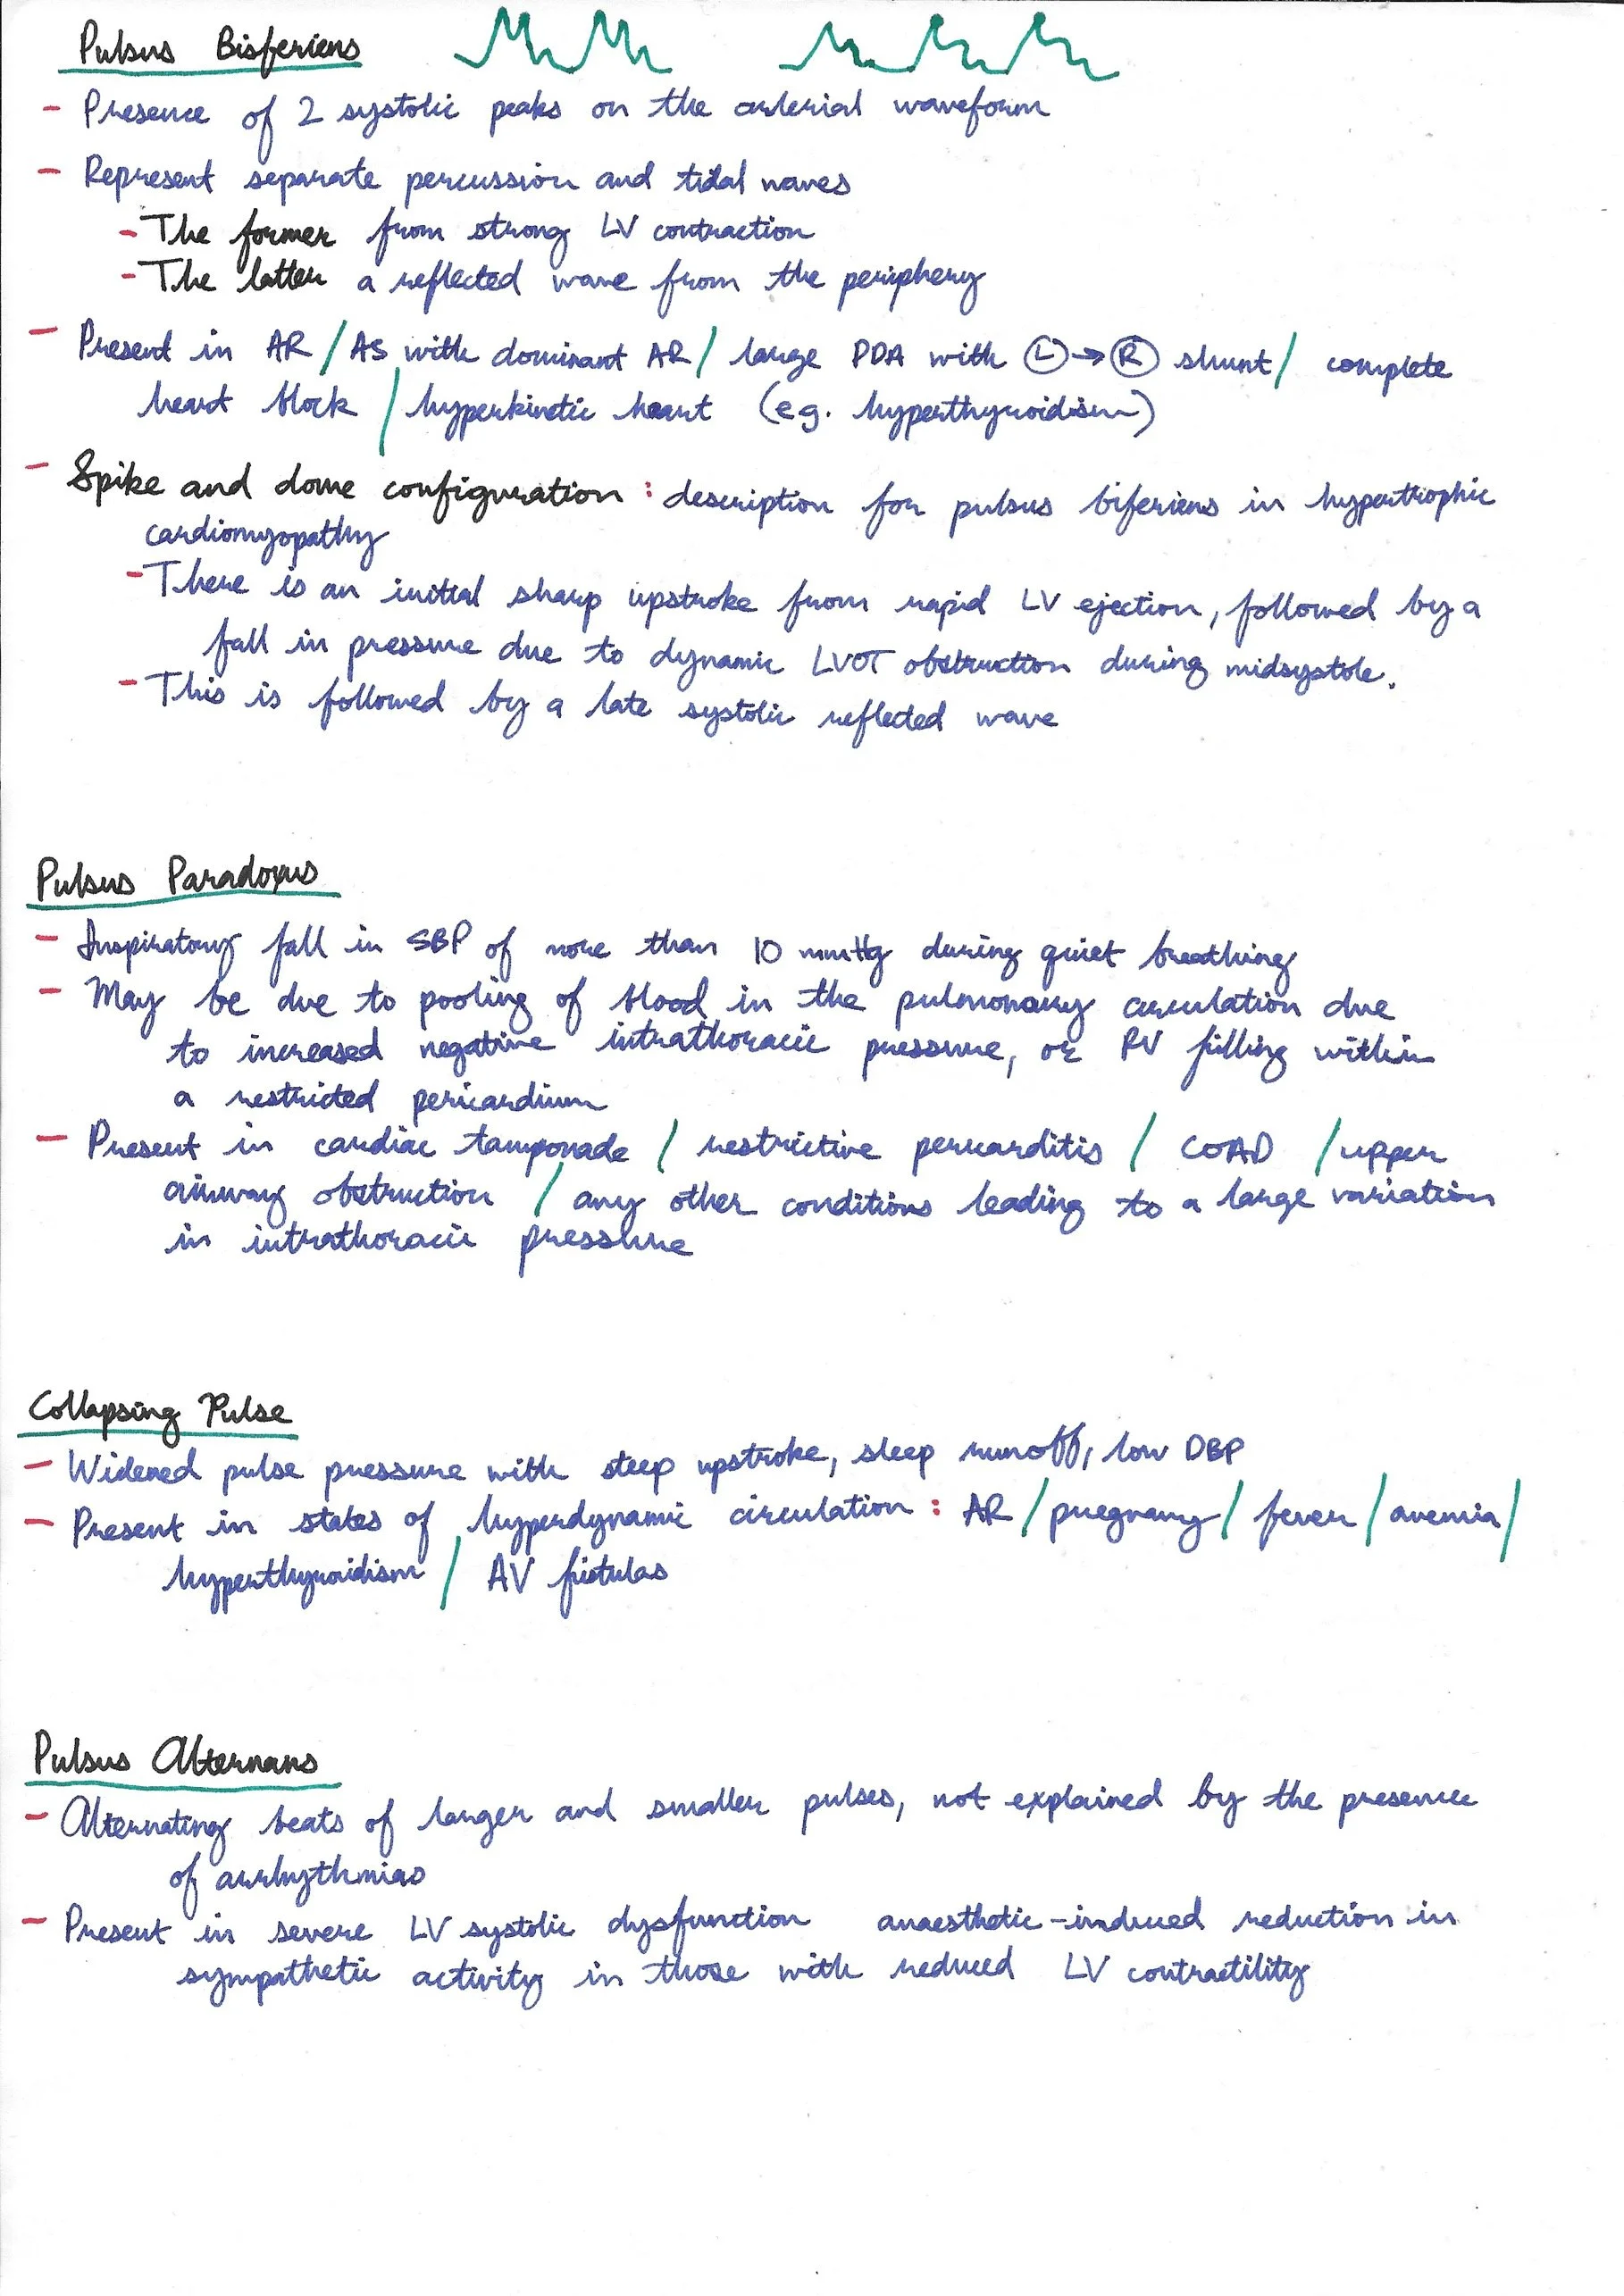 Pulsus Bisferiens
- Presence of 2 systolic peaks on the arterial waveform
- Represent separate percussion and tidal waves
- The former from strong LV contraction
- The latter a reflected wave from the periphery
- Present in AR / AS with dominant AR / large PDA with Ⓛ→Ⓡ shunt / complete
heart block / hyperkinetic heart (eg. hyperthyroidism)
- Spike and dome configuration : description for pulsus biferiens in hypertrophic
cardiomyopathy
- There is an initial sharp upstroke from rapid LV ejection, followed by a
fall in pressure due to dynamic LVOT obstruction during midsystole.
- This is followed by a late systolic reflected wave
Pulsus Paradoxus
- Inspiratory fall in SBP of more than 10 mmHg during quiet breathing
- May be due to pooling of blood in the pulmonary circulation due
to increased negative intrathoracic pressure, or RV filling within
a restricted pericardium
- Present in cardiac tamponade / restrictive pericarditis / COAD / upper
airway obstruction / any other conditions leading to a large variation
in intrathoracic pressure
Collapsing Pulse
- Widened pulse pressure with steep upstroke, steep runoff, low DBP
- Present in states of hyperdynamic circulation : AR / pregnancy / fever / anemia /
hyperthyroidism / AV fistulas
Pulsus Alternans
- Alternating beats of larger and smaller pulses, not explained by the presence
of arrhythmias
- Present in severe LV systolic dysfunction anaesthetic-induced reduction in
sympathetic activity in those with reduced LV contractility